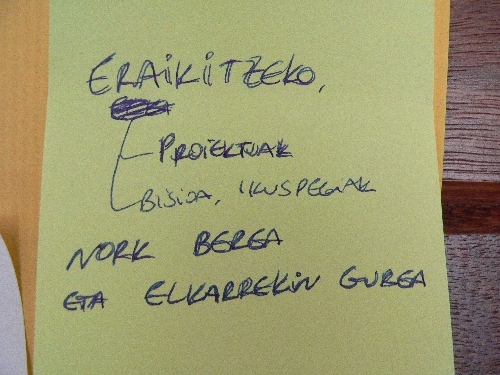 ERAIKITZEKO,
PROIEKTUAK
BISIOA, IKUSPEGIAK
NORK BEREA
ETA ELKARREKIN GUREA